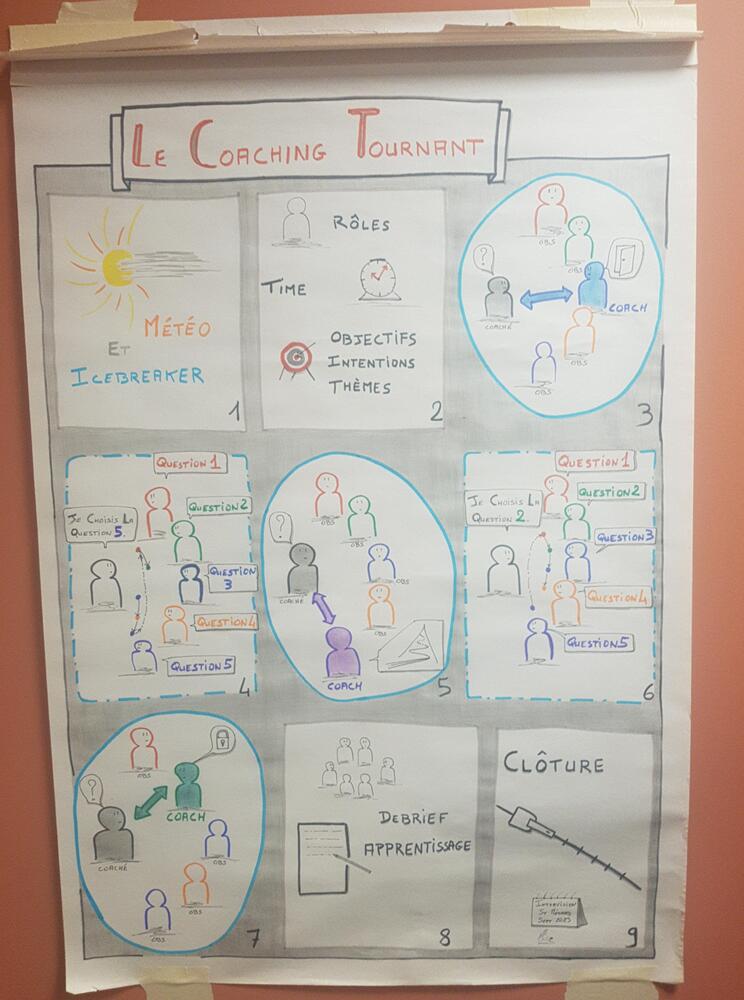 LE COACHING TOURNANT
MÉTÉO
ET
ICEBREAKER
1
RÔLES
TIME
OBJECTIFS
INTENTIONS
THÈMES
2
OBS
OBS
?
COACHÉ
COACH
OBS
OBS
3
QUESTION 1
QUESTION 2
JE CHOISIS LA
QUESTION 5.
QUESTION
3
QUESTION 4
QUESTION 5
4
OBS
OBS
?
COACHÉ
OBS
OBS
COACH
5
QUESTION 1
QUESTION 2
JE CHOISIS LA
QUESTION 2.
QUESTION 3
QUESTION 4
QUESTION 5
6
OBS
?
COACH
COACHÉ
OBS
OBS
OBS
7
DEBRIEF
APPRENTISSAGE
8
CLÔTURE
INTERVISION
SEPT 2023
9